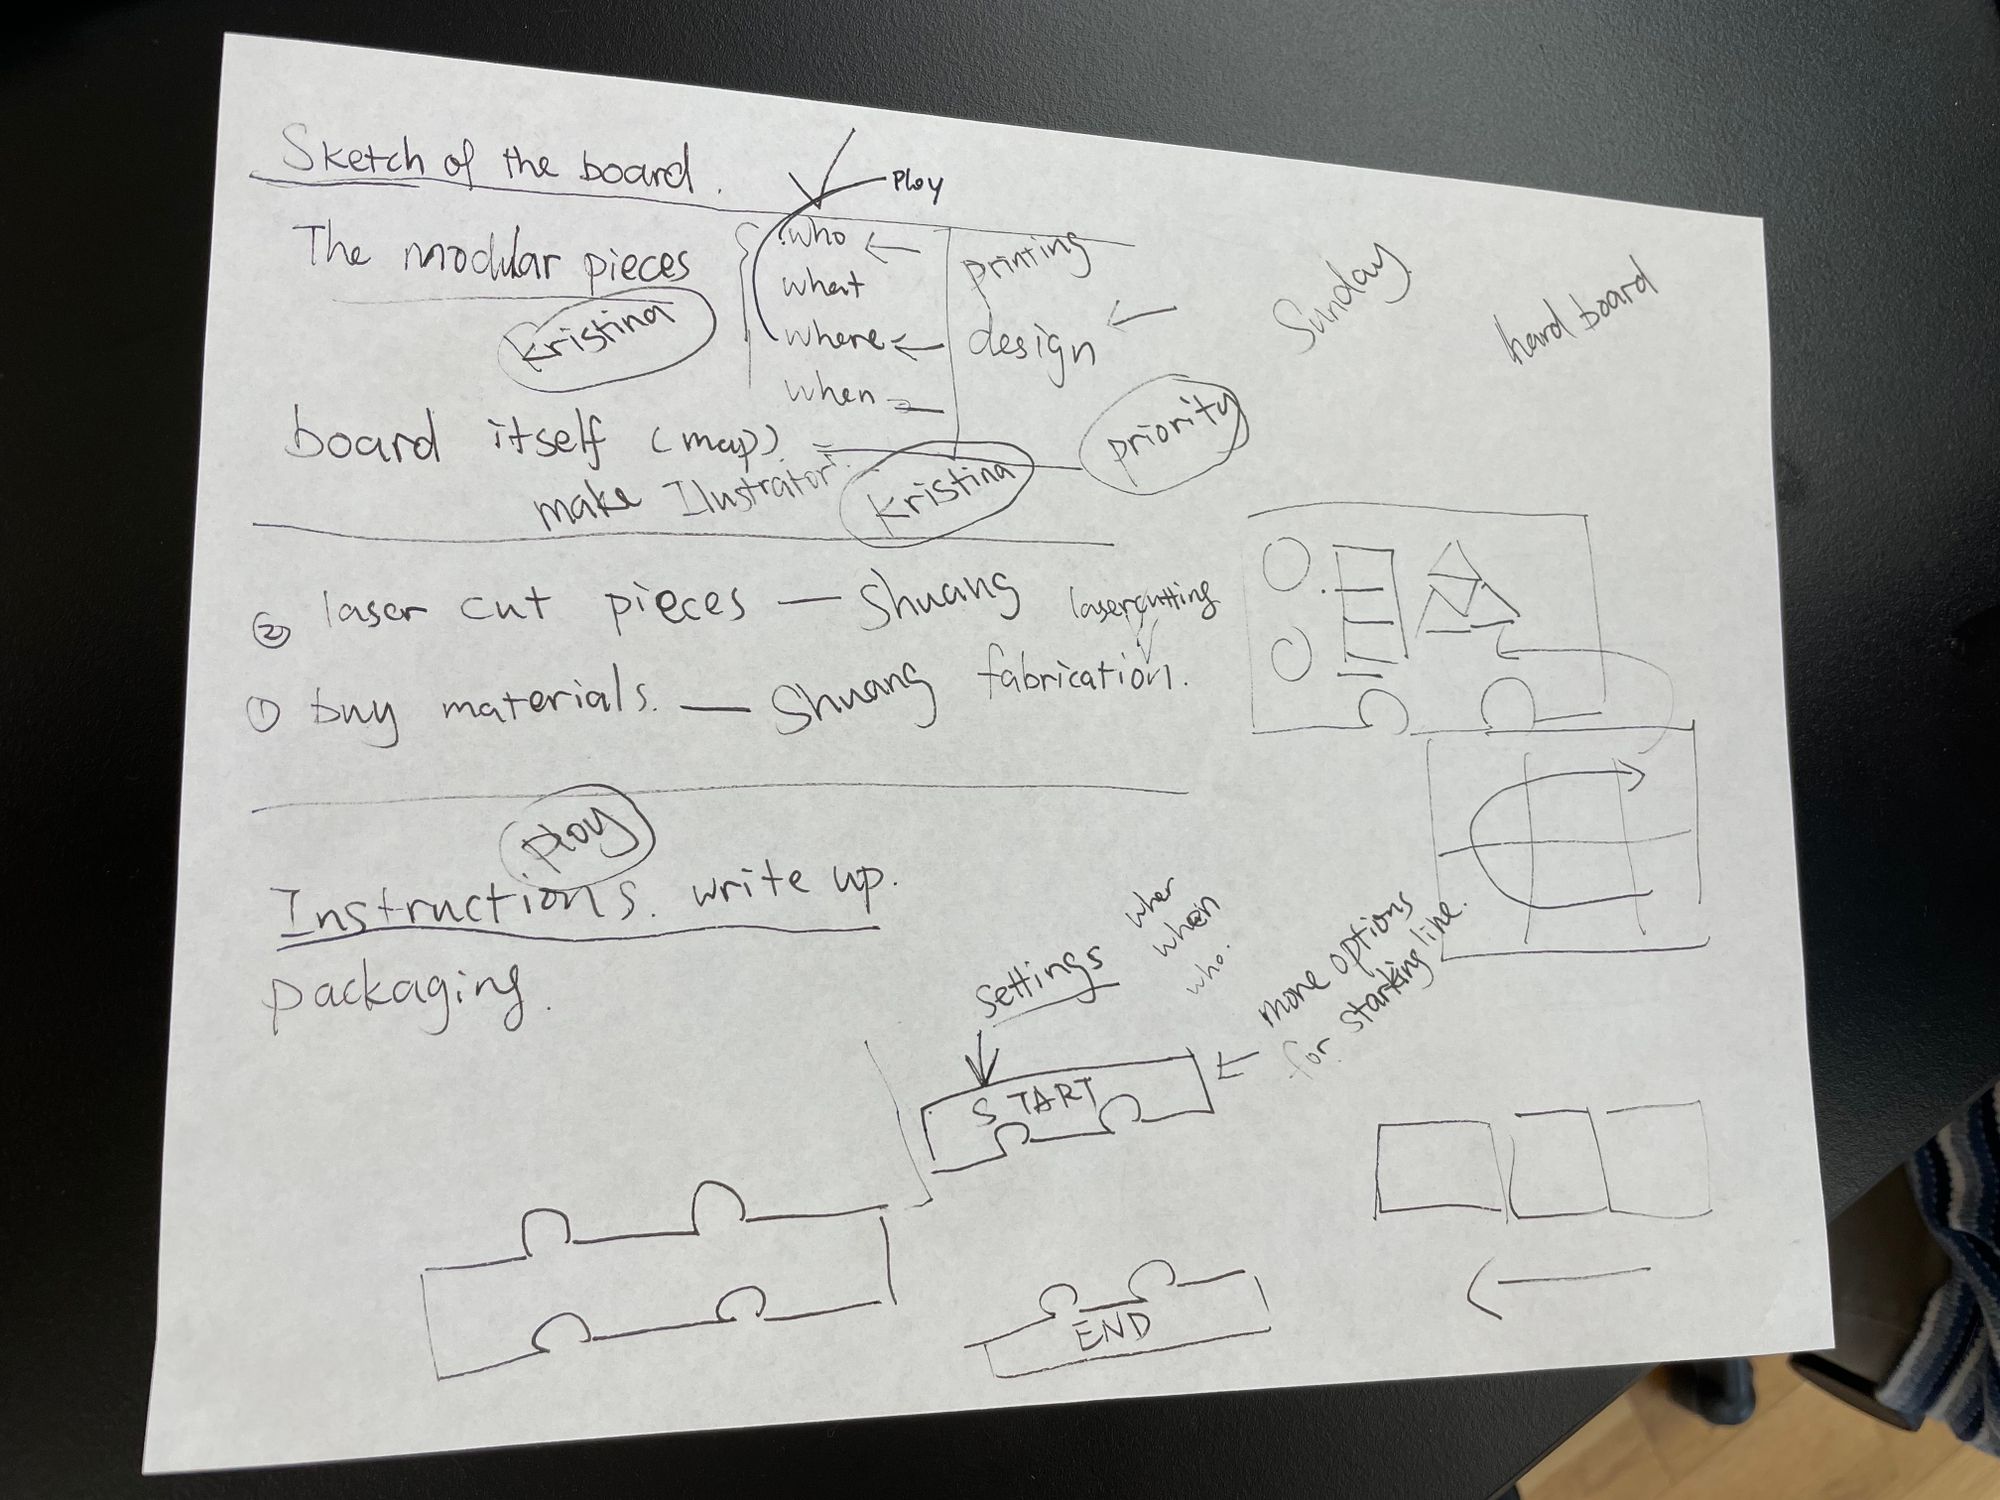 Sketch of the board.
Ploy
The modular pieces
Kristina
who
what
where
when
printing
design
Sunday
hard board
priority
board itself (map)
make Ilustrator
Kristina
② laser cut pieces — Shuang
lasercutting
① buy materials. — Shuang
fabrication.
Ploy
Instructions. write up.
packaging.
settings
wher
when
who.
more options
for starting line.
START
END